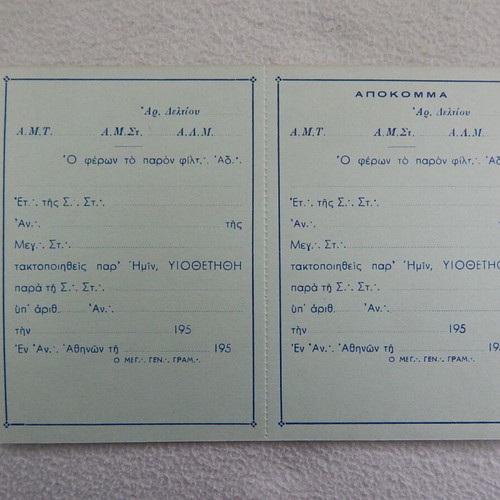 Ἀρ. Δελτίου
Α.Μ.Τ. Α.Μ.Στ. Α.Δ.Μ.
Ὁ φέρων τὸ παρὸν φίλτ.·. Ἀδ.·.
Ἐτ.·. τῆς Σ.·. Στ.·.
Ἀν.·. τῆς
Μεγ.·. Στ.·.
τακτοποιηθεὶς παρ' Ἡμῖν, ΥΙΟΘΕΤΗΘΗ
παρὰ τῇ Σ.·. Στ.·.
ὑπ' ἀριθ. Ἀν.·.
τὴν 195
Ἐν Ἀν.·. Ἀθηνῶν τῇ 195
Ο ΜΕΓ.·. ΓΕΝ.·. ΓΡΑΜ.·.
ΑΠΟΚΟΜΜΑ
Ἀρ. Δελτίου
Α.Μ.Τ. Α.Μ.Στ. Α.Δ.Μ.
Ὁ φέρων τὸ παρὸν φίλτ.·. Ἀδ
Ἐτ.·. τῆς Σ.·. Στ.·.
Ἀν.·.
Μεγ.·. Στ.·.
τακτοποιηθεὶς παρ' Ἡμῖν, ΥΙΟΘΕΤΗΘ
παρὰ τῇ Σ.·. Στ.·.
ὑπ' ἀριθ. Ἀν.·.
τὴν 195
Ἐν Ἀν.·. Ἀθηνῶν τῇ 19
Ο ΜΕΓ.·. ΓΕΝ.·. ΓΡΑΜ.·.